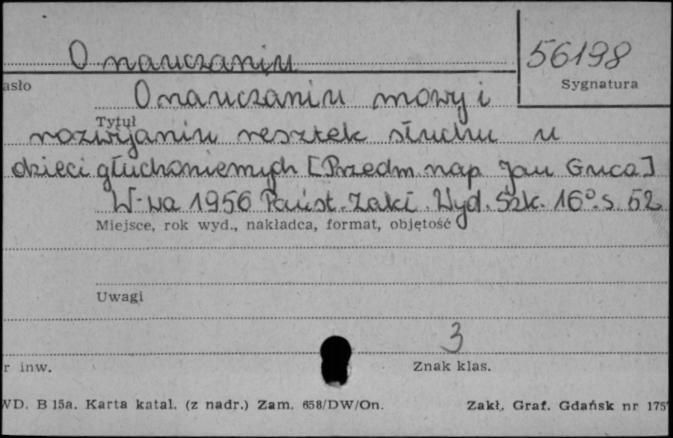 O nauczaniu
56198
asło
Sygnatura
O nauczaniu mowy i
Tytuł
rozwijaniu resztek słuchu u
dzieci głuchoniemych [Przedm. nap. Jan Guca]
W-wa 1956 Państ. Zakł. Wyd. Szk. 16°. s. 52
Miejsce, rok wyd., nakładca, format, objętość
Uwagi
3
r inw.
Znak klas.
WD. B 15a. Karta katal. (z nadr.) Zam. 658/DW/On.
Zakł. Graf. Gdańsk nr 175